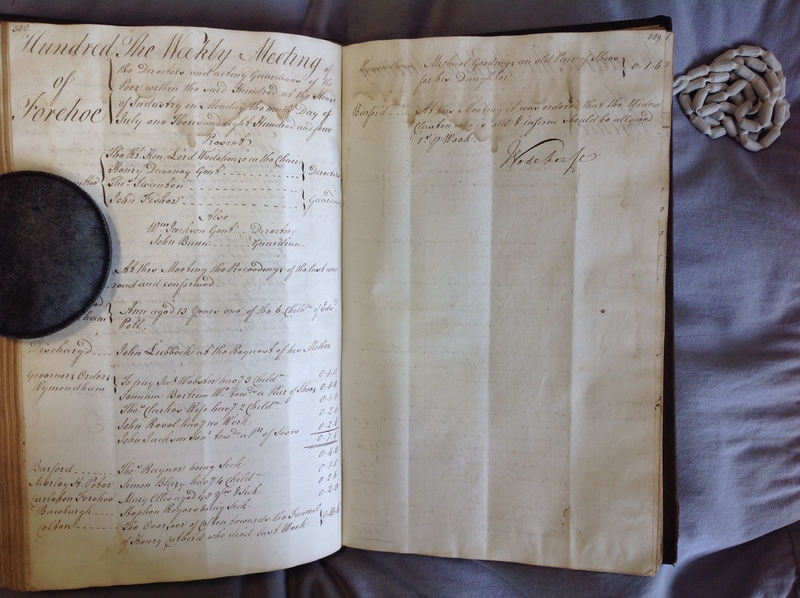 380
Hundred The Weekly Meeting of
of the Directors and acting Guardians of the
Poor within the said Hundred at the House
Forehoe of Industry on Monday the Day of
July one Thousand eight Hundred and four
Present
The Rt. Hon. Lord Wodehouse in the Chair
Henry Gent. Directors
Thos. Swanton
John Fisher Guardians
Also
Wm. Jackson Gent. Director
John Bunn Guardian
At this Meeting the Proceedings of the last were
read and confirmed
Ann aged 13 Years one of the 6 Childn. of Edwd.
Poll.
Discharg'd John Lubbock at the Request of his Mother
Governors Orders
Wymondham To pay Sal. Webster havg. 3 Childn. 0.1.0
Jemima Bartrum Wo. towds. a Pair of Shoes 0.1.0
Thos. Clarkes Wife havg. 2 Childn. 0.1.0
John havg. no Work 0.2.0
John Jackson Senr. towds. a Pr. of Shoes 0.2.6
0.7.6
Barford Thos. Raynor being Sick 0.4.0
Morley St. Peter Simon Blazy havg. 4 Childn. 0.1.6
Carleton Forehoe Mary Ollis aged 40 & Sick 0.2.6
Bawburgh Stephen Rogers being Sick 0.2.0
Colton The Overseer of Colton towards the Funeral
of Henry who died last Week
389
Wymondham Michael Goodings an old Pair of Shoes
for his Daughter 0.1.6
Barford At this Meeting it was ordered that the Widow
Claxton who is old & infirm should be allowed
1s. p Week
Wodehouse